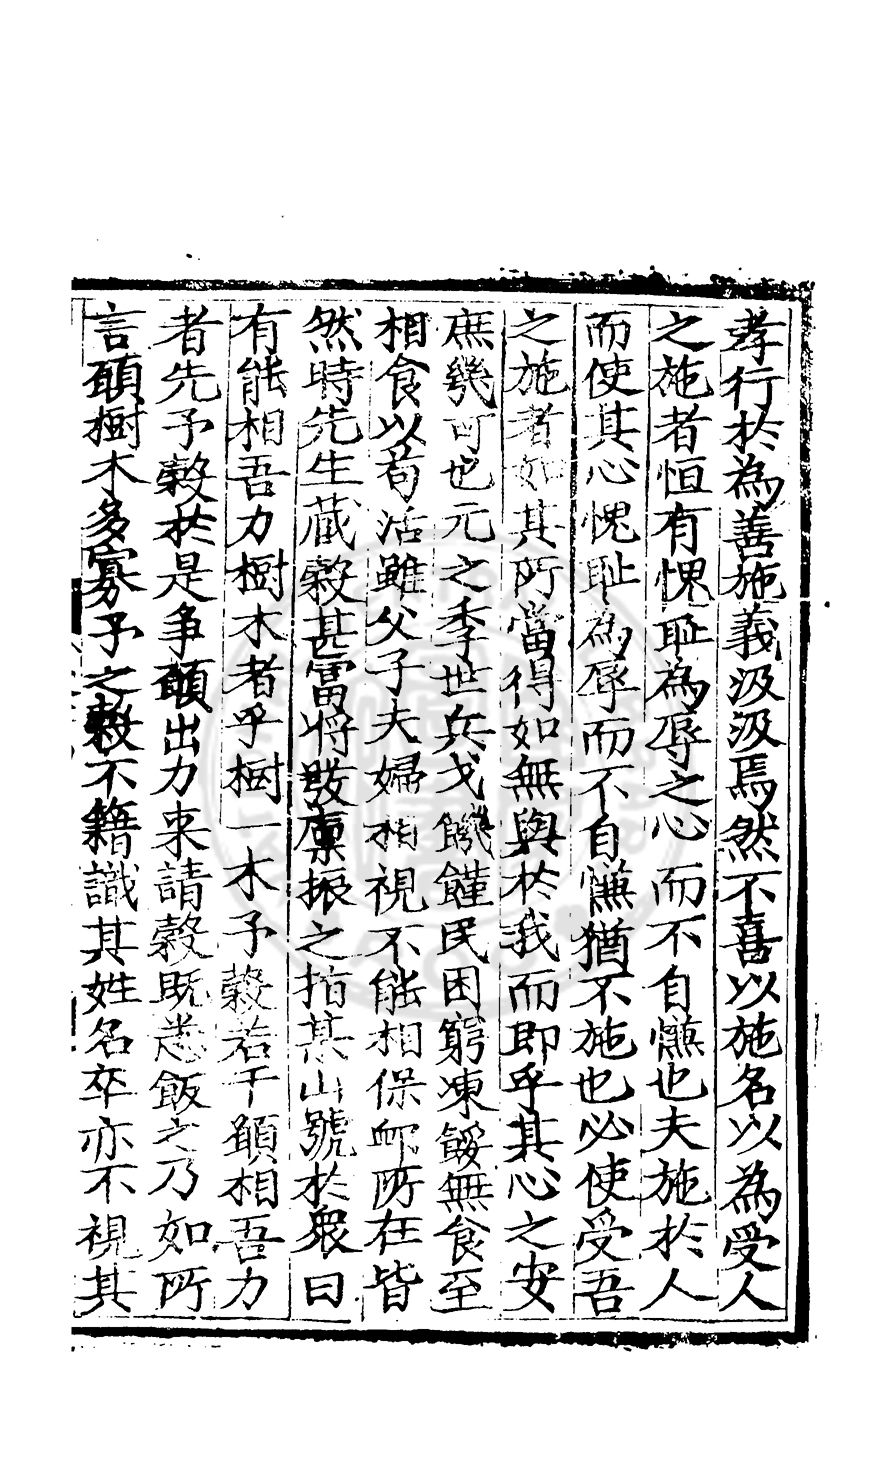 孝行於為善施義汲汲焉然不喜以施名以為受人
之施者恒有愧恥為辱之心而不自慊也夫施於人
而使其心愧恥為辱而不自慊猶不施也必使受吾
之施者如其所當得如無與於我而即乎其心之安
庶幾可也元之季世兵戈饑饉民困窮凍餒無食至
相食以苟活雖父子夫婦相視不能相保卹所在皆
然時先生蔵穀甚富将發廩振之指某山號於衆曰
有能相吾力樹木者乎樹一木予穀若干願相吾力
者先予穀於是争願出力来請穀既悉飯之乃如所
言願樹木多寡予之穀不籍識其姓名卒亦不視其